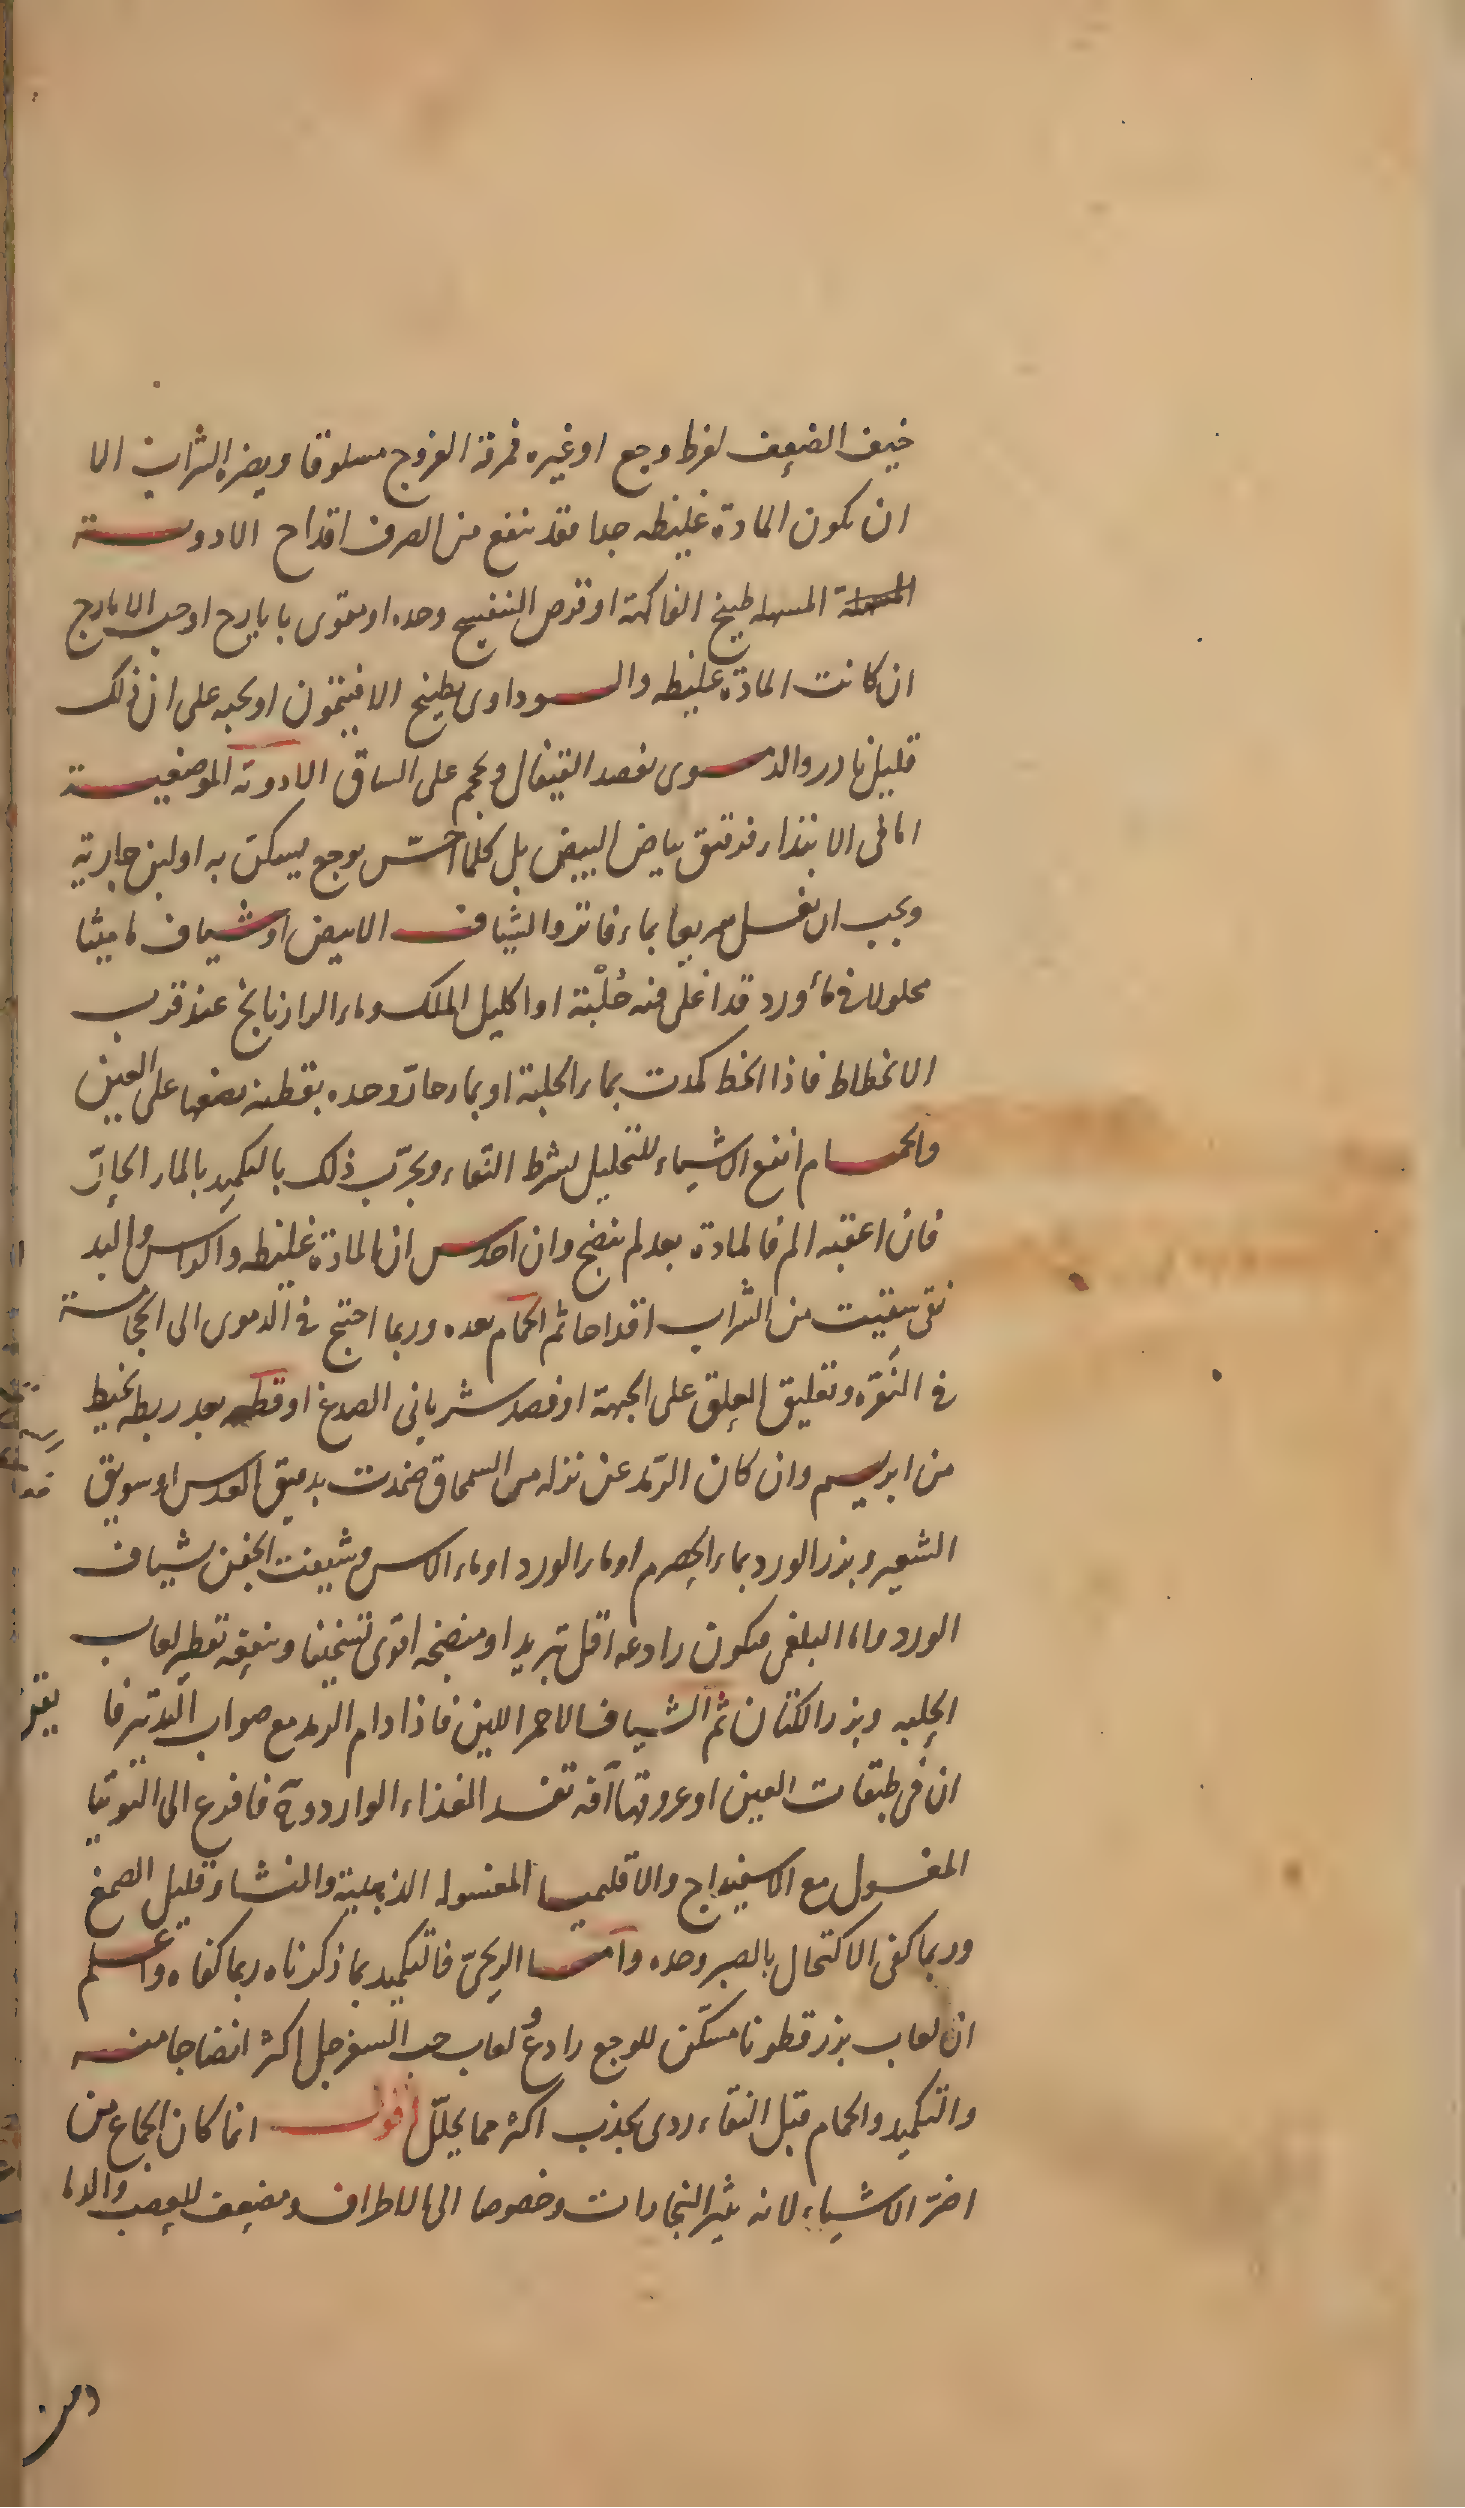 خيف الضعف لفرط وجع او غيره فمرقة الفروج مسلوقا ويضره الشراب الا
ان يكون المادة غليظه جدا فقد ينفع من الصرف اقداح الادويـــة
المسهلة المسهله طبيخ الفاكهة او قرص البنفسج وحده او مقوى بايارج او حب الايارج
ان كانت المادة غليظه والسوداوى بطبيخ الافيتمون او بحبه على ان ذلك
قليل نادر والدمــوى بفصد القيفال ويحجم على الساق الادوية الموضعيــة
اما فى الابتداء فرقيق بياض البيض بل كلما احسّ بوجع يسكن به او لبن جارية
ويجب ان يغسل سريعا بماء فاتر والشياف الابيض او شياف ماميثا
محلولا فى ماء ورد قد اغلى فيه حُلْبة او اكليل الملك وماء الرازيانج عند قرب
الانحطاط فاذا انحط كمدت بماء الحلبة او بماء حارّ وحده بقطنه تضعها على العين
والحمــام انفع الاشياء للتحليل بشرط النقاء ويجرّب ذلك بالتكميد بالماء الحارّ
فان اعقبه الم فالمادة بعد لم تنضج وان احدس ان المادة غليظه والراس والبد
نقى سقيت من الشراب اقداحا ثم الحمام بعده وربما احتج فى الدموى الى الحجامــة
فى النُقرة وتعليق العلق على الجبهة او فصد شريانى الصدغ او قطعه بعد ربطه بخيط
من ابريسم وان كان الرّمد عن نزله من السمحاق ضمدت بدقيق العدس او سويق
الشعير وبزر الورد بماء الحصرم او ماء الورد او ماء الاس وشيفت الجفن بشياف
الورد واما البلغمى فيكون رادعه اقل تبريدا ومنضجه اقوى تسخينا وينفعه تقطير لعاب
الحلبه وبزر الكتان ثم الشياف الاحمر اللين فاذا دام الرمد مع صواب التدبير فا
ان فى طبقات العين او عروقها آفه تفسد الغذاء الوارد فافزع الى التوتيا
المغسول مع الاسفيداج والاقليميا المغسوله الذهبية والنشا وقليل الصمغ
وربما كفى الاكتحال بالصبر وحده وامــا الريحىّ فالتكميد بما ذكرناه ربما كفاه واعلم
ان لعاب بزر قطونا مسكّن للوجع رادعٌ ولعاب حب السفرجل اكثر انضاجا منــه
والتكميد والحمام قبل النقاء ردى يجذب اكثر مما يحلّل اقول انما كان الجماع من
اضرّ الاشياء لانه يثير البخارات وخصوصا الى الاطراف ومضعف للعصب والدما